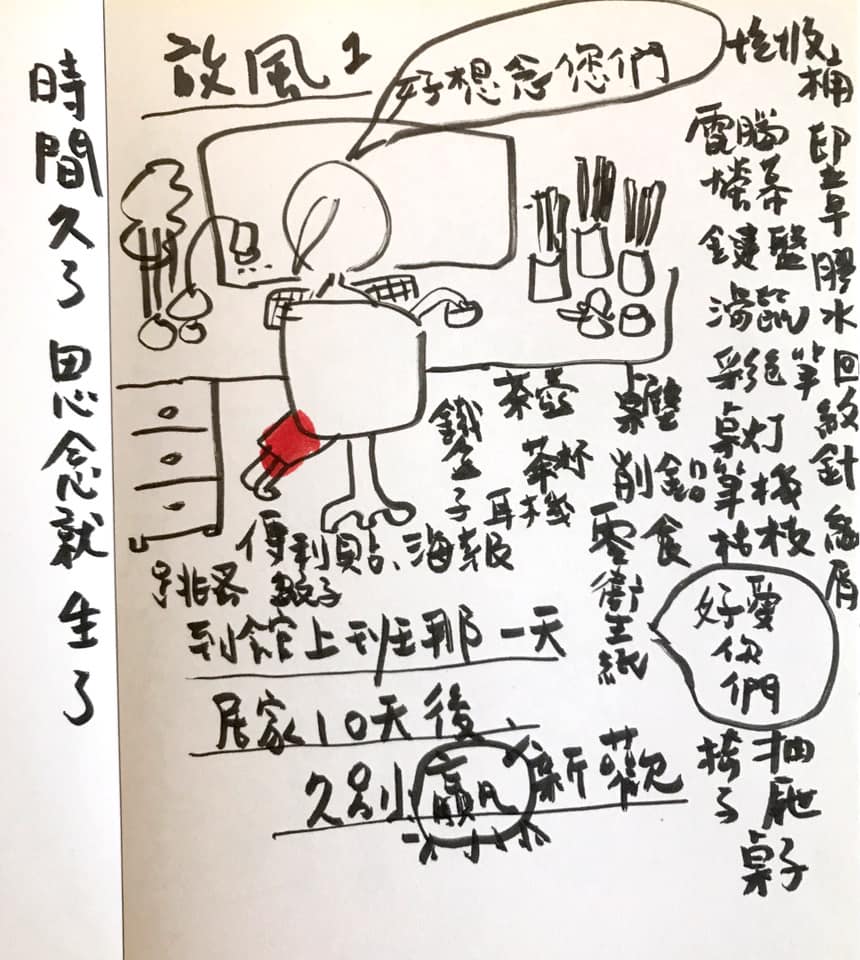 放風1
好想念您們
時間久了思念就生了
垃圾桶
印章膠水回紋針紙屑
電腦螢幕
鍵盤
滑鼠
彩色筆
桌灯
筆
機
枯枝
茶壺
桌墊
鐵盒子
茶杯
削鉛
耳機
零食
衛生紙
便利貼、海報
跳蚤
蚊子
好愛你們
抽屜
椅子
桌子
到館上班那一天
居家10天後
久別贏新歡